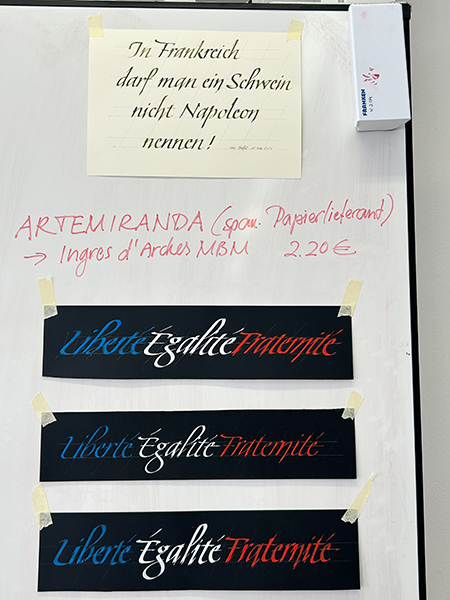 In Frankreich
darf man ein Schwein
nicht Napoleon
nennen!
FRANKEN
ARTEMIRANDA (span. Papierlieferant)
→ Ingres d'Arches MBM 2.20 €
Liberté Égalité Fraternité
Liberté Égalité Fraternité
Liberté Égalité Fraternité